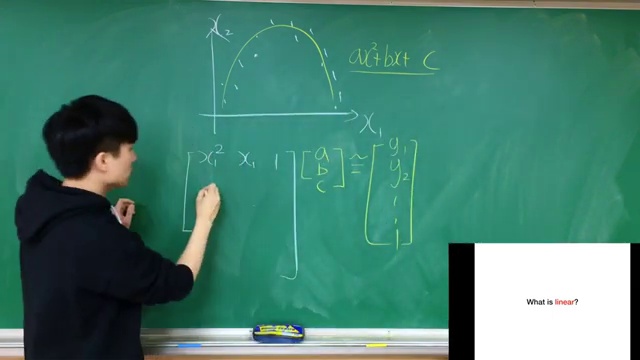 x₂
ax²+bx+c
x₁
x₁² x₁ 1 a ≃ y₁
b y₂
c
What is linear?